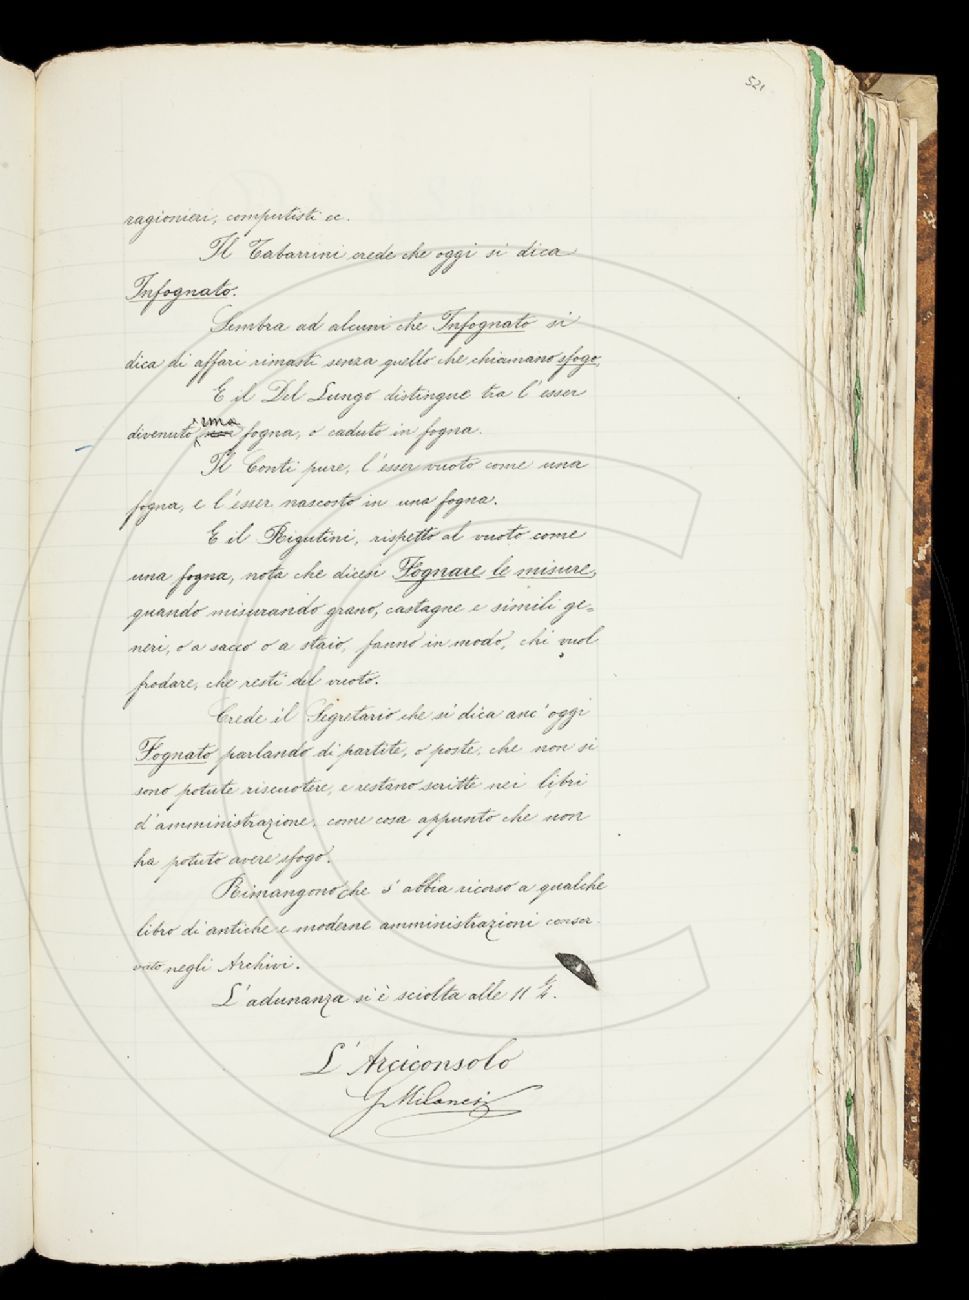 521
ragionieri, computisti ec.
Il Tabarrini crede che oggi si dica
Infognato.
Sembra ad alcuni che Infognato si
dica di affari rimasti senza quello che chiamano sfogo.
E il Del Lungo distingue tra l'esser
divenuto una fogna, o caduto in fogna.
Il Conti pure, l'esser vuoto come una
fogna, e l'esser nascosto in una fogna.
E il Rigutini, rispetto al vuoto come
una fogna, nota che dicesi Fognare le misure,
quando misurando grano, castagne e simili ge=
neri, o a sacco o a staio, fanno in modo, chi vuol
frodare, che resti del vuoto.
Crede il Segretario che si dica anc'oggi
Fognato parlando di partite, o poste, che non si
sono potute riscuotere, e restano scritte nei libri
d'amministrazione, come cosa appunto che non
ha potuto avere sfogo.
Rimangono che s'abbia ricorso a qualche
libro di antiche e moderne amministrazioni conser
vato negli Archivi.
L'adunanza si è sciolta alle 11 1/4.
L'Arciconsolo
G Milanesi